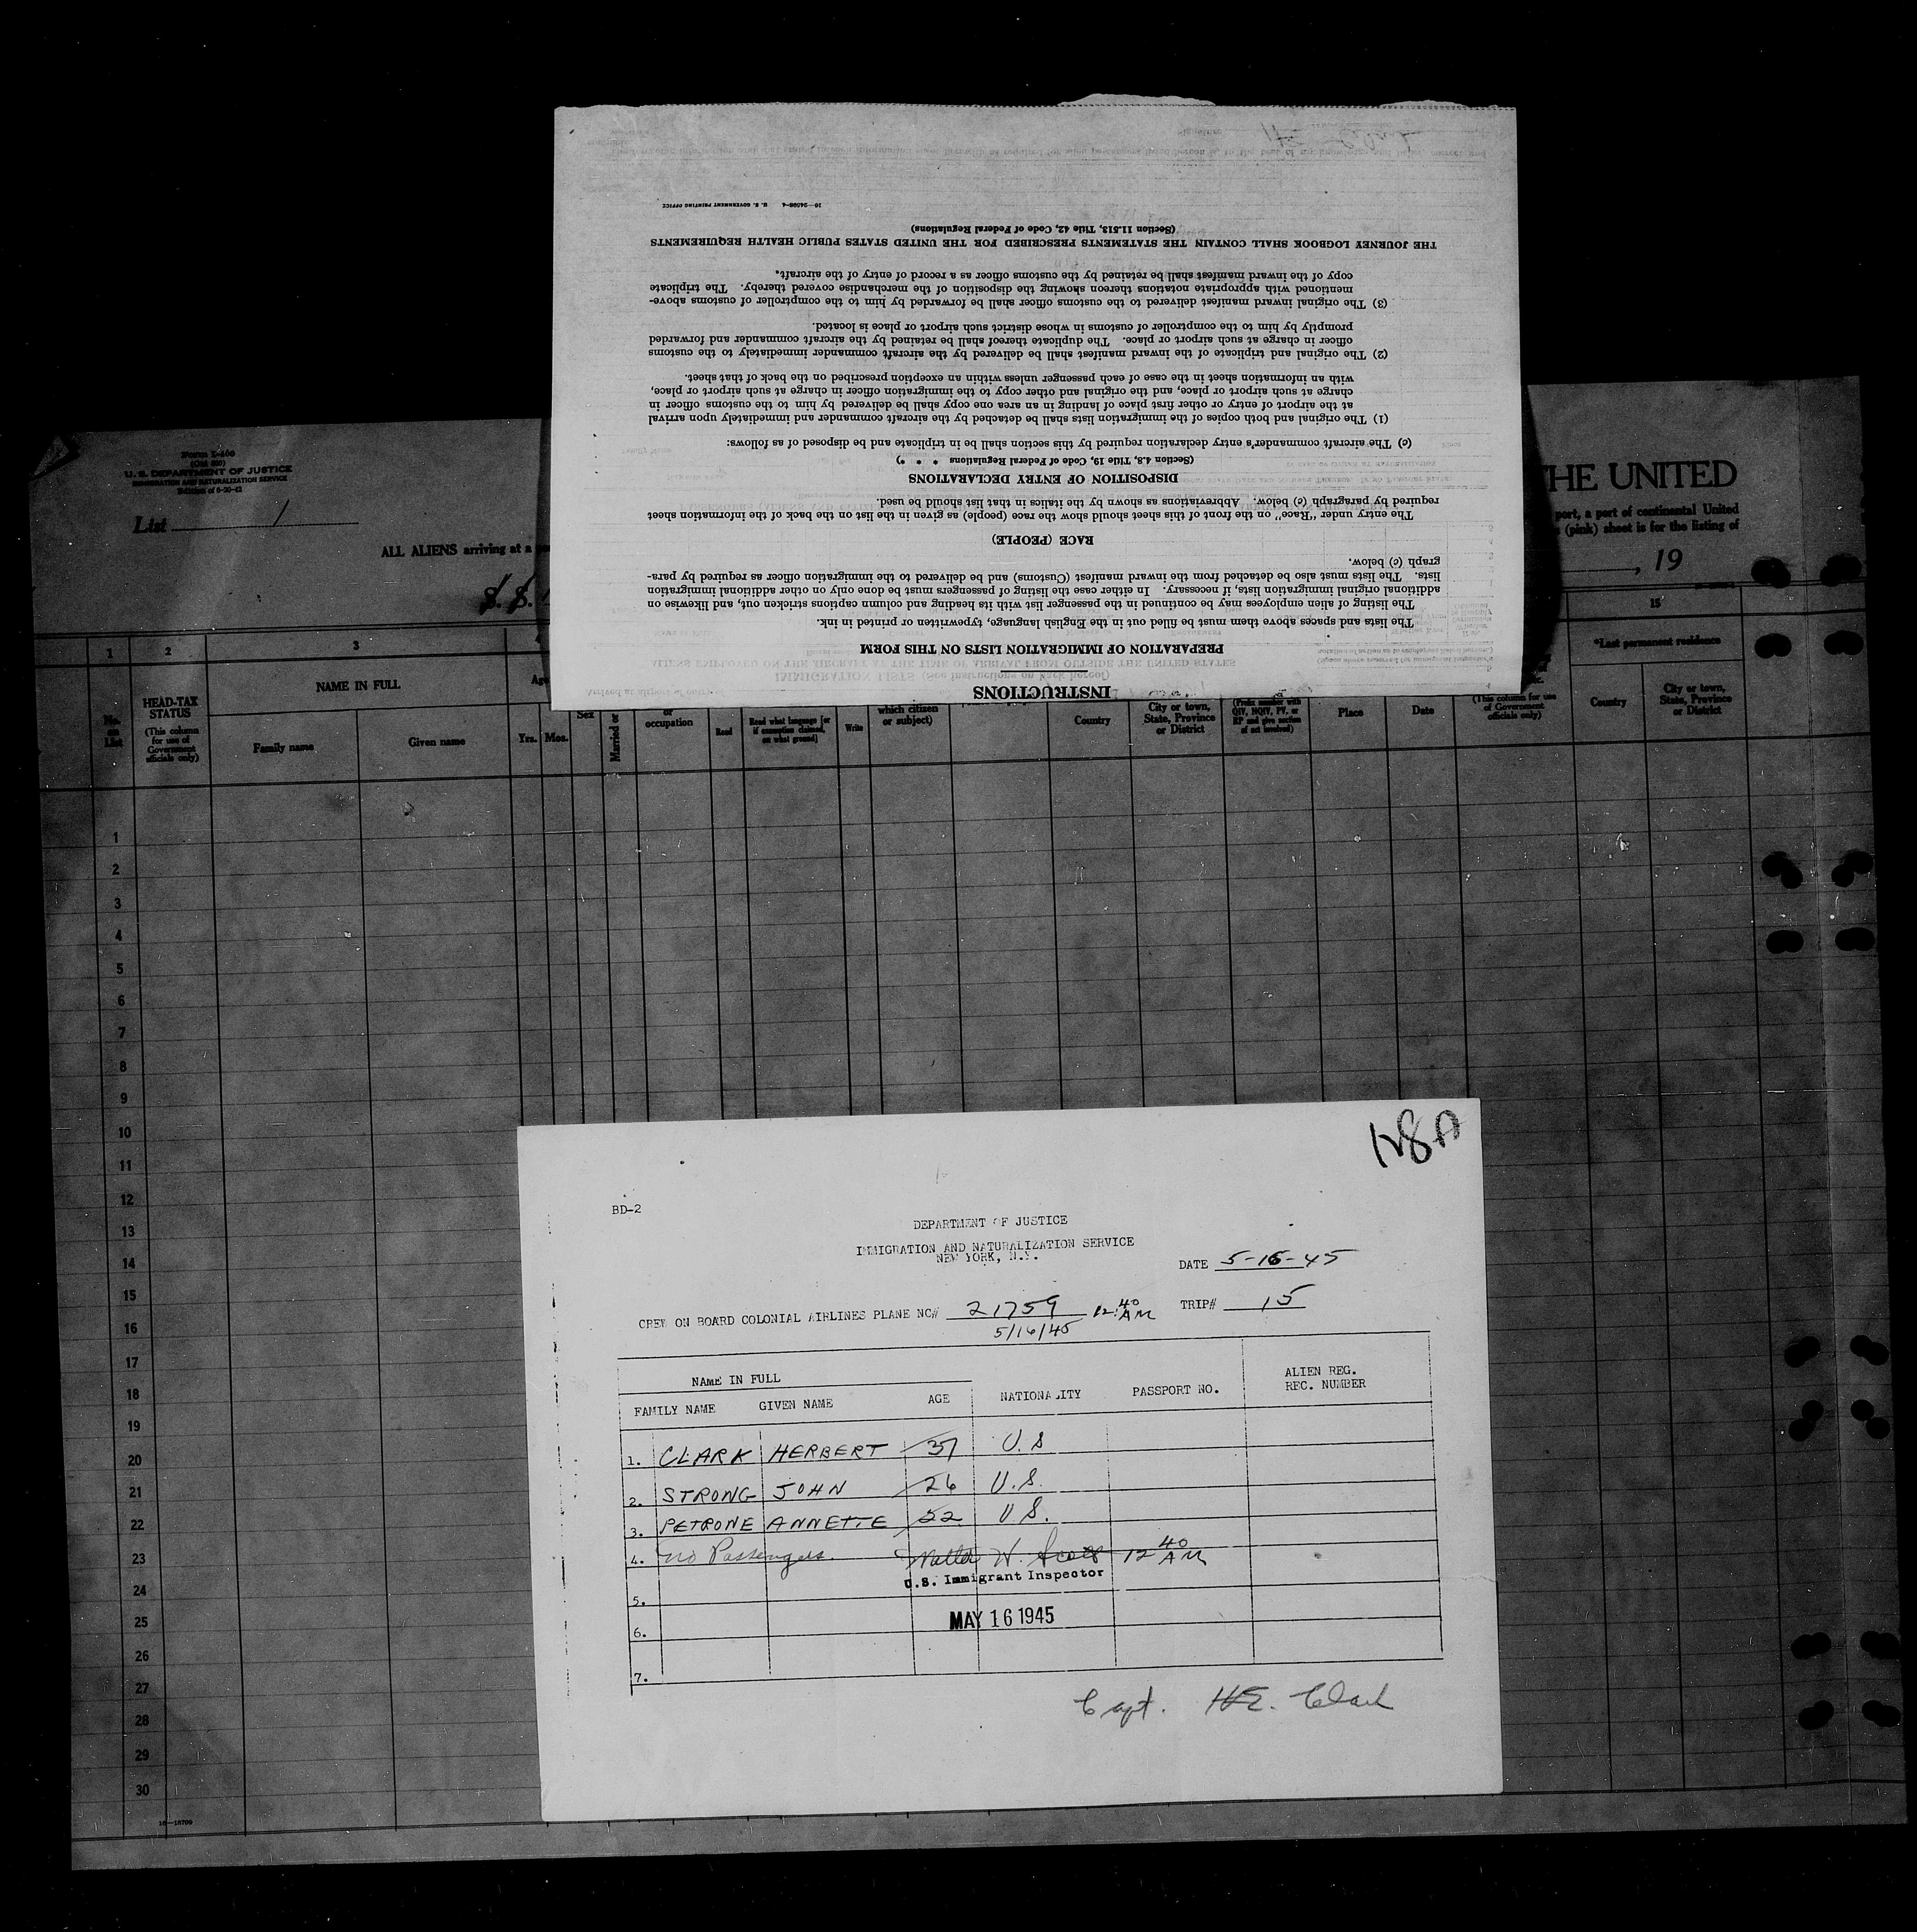 INSTRUCTIONS
PREPARATION OF IMMIGRATION LISTS ON THIS FORM
The lists and spaces above them must be filled out in the English language, typewritten or printed in ink.
The listing of alien employees may be continued in the passenger list with its heading and column captions stricken out, and likewise on
additional original immigration lists, if necessary. In either case the listing of passengers must be done only on other additional immigration
lists. The lists must also be detached from the inward manifest (Customs) and be delivered to the immigration officer as required by para-
graph (c) below.
RACE (PEOPLE)
The entry under "Race" on the front of this sheet should show the race (people) as given in the list on the back of the information sheet
required by paragraph (c) below. Abbreviations as shown by the italics in that list should be used.
DISPOSITION OF ENTRY DECLARATIONS
(Section 4.8, Title 19, Code of Federal Regulations * * *)
(c) The aircraft commander's entry declaration required by this section shall be in triplicate and be disposed of as follows:
(1) The original and both copies of the immigration lists shall be detached by the aircraft commander and immediately upon arrival
at the airport of entry or other first place of landing in an area one copy shall be delivered by him to the customs officer in
charge at such airport or place, and the original and other copy to the immigration officer in charge at such airport or place,
with an information sheet in the case of each passenger unless within an exception prescribed on the back of that sheet.
(2) The original and triplicate of the inward manifest shall be delivered by the aircraft commander immediately to the customs
officer in charge at such airport or place. The duplicate thereof shall be retained by the aircraft commander and forwarded
promptly by him to the comptroller of customs in whose district such airport or place is located.
(3) The original inward manifest delivered to the customs officer shall be forwarded by him to the comptroller of customs above-
mentioned with appropriate notations thereon showing the disposition of the merchandise covered thereby. The triplicate
copy of the inward manifest shall be retained by the customs officer as a record of entry of the aircraft.
THE JOURNEY LOGBOOK SHALL CONTAIN THE STATEMENTS PRESCRIBED FOR THE UNITED STATES PUBLIC HEALTH REQUIREMENTS
(Section 11.513, Title 42, Code of Federal Regulations)
U. S. GOVERNMENT PRINTING OFFICE
U. S. DEPARTMENT OF JUSTICE
IMMIGRATION AND NATURALIZATION SERVICE
Edition of 6-20-42
List 1
HE UNITED
ALL ALIENS arriving at a
port, a part of continental United
(pink) sheet is for the listing of
S. S.
, 19
1 2 3 15
HEAD-TAX STATUS
(This column for use of Government officials only)
NAME IN FULL
*Last permanent residence
No. on List
Family name Given name Yrs. Mos. Sex Married or
or occupation
Read Read what language [or if exemption claimed, on what ground] Write
which citizen or subject)
Country City or town, State, Province or District
(Prefix number with QIV, NQIV, PV, or RP and give section of act involved)
Place Date
(This column for use of Government officials only)
Country City or town, State, Province or District
1
2
3
4
5
6
7
8
9
10
11
12
13
14
15
16
17
18
19
20
21
22
23
24
25
26
27
28
29
30
128A
BD-2
DEPARTMENT OF JUSTICE
IMMIGRATION AND NATURALIZATION SERVICE
NEW YORK, N.Y.
DATE 5-16-45
CREW ON BOARD COLONIAL AIRLINES PLANE NC# 21759 12:40 AM TRIP# 15
5/16/45
NAME IN FULL
FAMILY NAME GIVEN NAME AGE NATIONALITY PASSPORT NO. ALIEN REG. REC. NUMBER
1. CLARK HERBERT 37 U.S
2. STRONG JOHN 26 U.S.
3. PETRONE ANNETTE 22 U S.
4. no Passengers. Walter H. Scott 12 40 AM
U.S. Immigrant Inspector
5.
MAY 16 1945
6.
7.
Capt. H.E. Clark